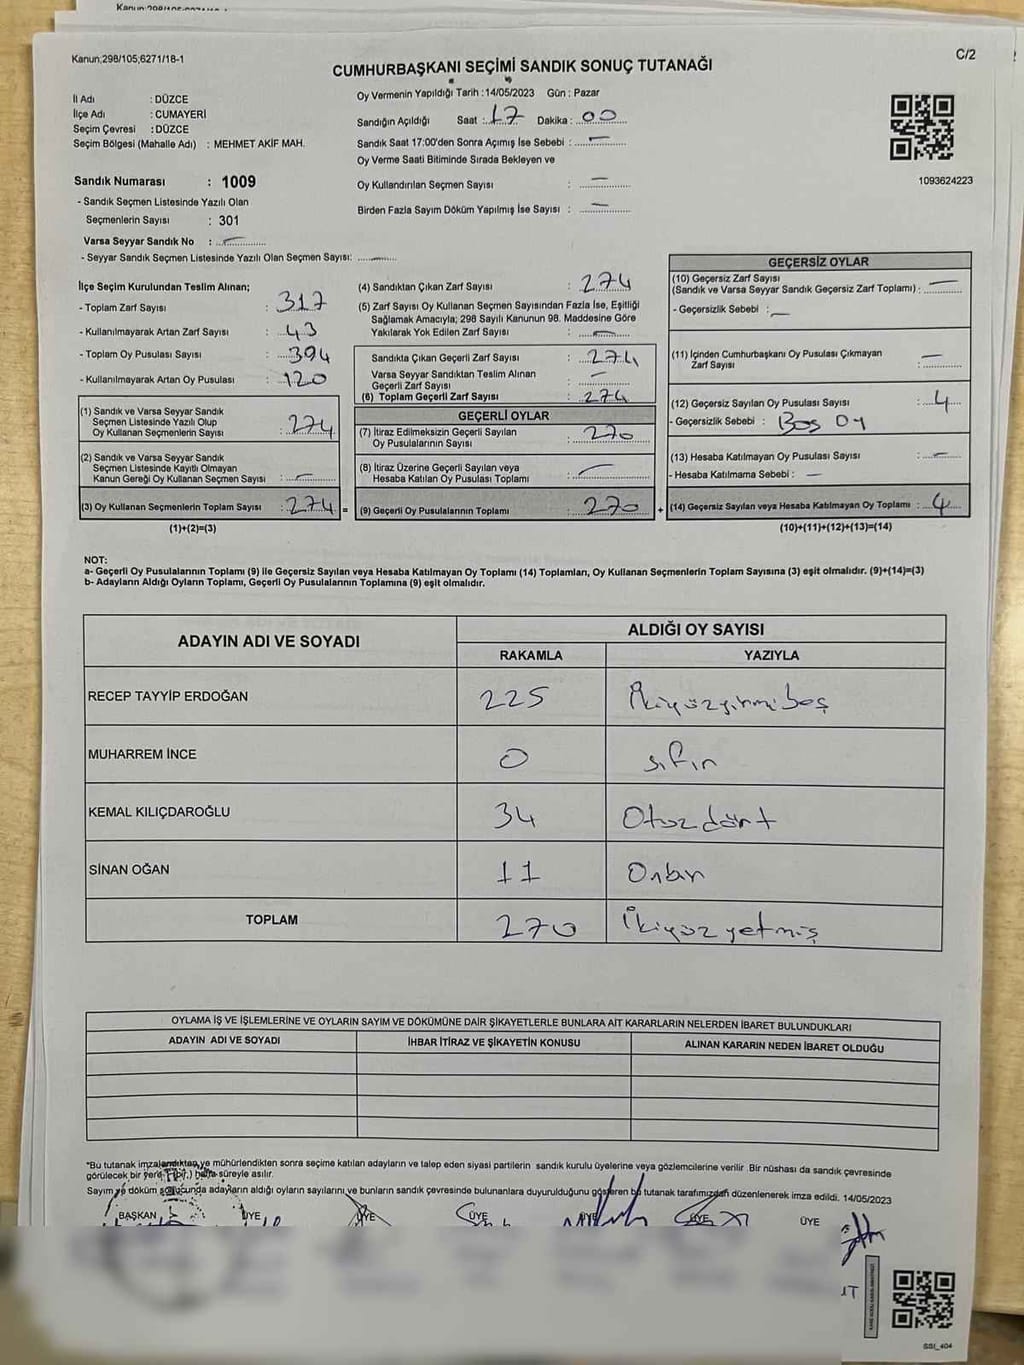 Kanun;298/105;6271/18-1
C/2
CUMHURBAŞKANI SEÇİMİ SANDIK SONUÇ TUTANAĞI
İl Adı : DÜZCE
İlçe Adı : CUMAYERİ
Seçim Çevresi : DÜZCE
Seçim Bölgesi (Mahalle Adı) : MEHMET AKİF MAH.
Oy Vermenin Yapıldığı Tarih :14/05/2023 Gün : Pazar
Sandığın Açıldığı Saat : 17 Dakika : 00
Sandık Saat 17:00'den Sonra Açımış İse Sebebi : —
Oy Verme Saati Bitiminde Sırada Bekleyen ve
Oy Kullandırılan Seçmen Sayısı : —
Birden Fazla Sayım Döküm Yapılmış İse Sayısı : —
1093624223
Sandık Numarası : 1009
- Sandık Seçmen Listesinde Yazılı Olan
Seçmenlerin Sayısı : 301
Varsa Seyyar Sandık No : —
- Seyyar Sandık Seçmen Listesinde Yazılı Olan Seçmen Sayısı: —
İlçe Seçim Kurulundan Teslim Alınan;
- Toplam Zarf Sayısı : 317
- Kullanılmayarak Artan Zarf Sayısı : 43
- Toplam Oy Pusulası Sayısı : 394
- Kullanılmayarak Artan Oy Pusulası : 120
(1) Sandık ve Varsa Seyyar Sandık
Seçmen Listesinde Yazılı Olup
Oy Kullanan Seçmenlerin Sayısı : 274
(2) Sandık ve Varsa Seyyar Sandık
Seçmen Listesinde Kayıtlı Olmayan
Kanun Gereği Oy Kullanan Seçmen Sayısı : —
(3) Oy Kullanan Seçmenlerin Toplam Sayısı : 274 =
(1)+(2)=(3)
(4) Sandıktan Çıkan Zarf Sayısı : 274
(5) Zarf Sayısı Oy Kullanan Seçmen Sayısından Fazla İse, Eşitliği
Sağlamak Amacıyla; 298 Sayılı Kanunun 98. Maddesine Göre
Yakılarak Yok Edilen Zarf Sayısı : —
Sandıkta Çıkan Geçerli Zarf Sayısı : 274
Varsa Seyyar Sandıktan Teslim Alınan
Geçerli Zarf Sayısı : —
(6) Toplam Geçerli Zarf Sayısı : 274
GEÇERLİ OYLAR
(7) İtiraz Edilmeksizin Geçerli Sayılan
Oy Pusulalarının Sayısı : 270
(8) İtiraz Üzerine Geçerli Sayılan veya
Hesaba Katılan Oy Pusulası Toplamı : —
(9) Geçerli Oy Pusulalarının Toplamı : 270 +
GEÇERSİZ OYLAR
(10) Geçersiz Zarf Sayısı
(Sandık ve Varsa Seyyar Sandık Geçersiz Zarf Toplamı) : —
- Geçersizlik Sebebi : —
(11) İçinden Cumhurbaşkanı Oy Pusulası Çıkmayan
Zarf Sayısı : —
(12) Geçersiz Sayılan Oy Pusulası Sayısı : 4
- Geçersizlik Sebebi : Boş Oy
(13) Hesaba Katılmayan Oy Pusulası Sayısı : —
- Hesaba Katılmama Sebebi : —
(14) Geçersiz Sayılan veya Hesaba Katılmayan Oy Toplamı : 4
(10)+(11)+(12)+(13)=(14)
NOT:
a- Geçerli Oy Pusulalarının Toplamı (9) ile Geçersiz Sayılan veya Hesaba Katılmayan Oy Toplamı (14) Toplamları, Oy Kullanan Seçmenlerin Toplam Sayısına (3) eşit olmalıdır. (9)+(14)=(3)
b- Adayların Aldığı Oyların Toplamı, Geçerli Oy Pusulalarının Toplamına (9) eşit olmalıdır.
ADAYIN ADI VE SOYADI
ALDIĞI OY SAYISI
RAKAMLA YAZIYLA
RECEP TAYYİP ERDOĞAN 225 İkiyüzyirmibeş
MUHARREM İNCE 0 sıfır
KEMAL KILIÇDAROĞLU 34 Otuzdört
SİNAN OĞAN 11 Onbir
TOPLAM 270 İkiyüzyetmiş
OYLAMA İŞ VE İŞLEMLERİNE VE OYLARIN SAYIM VE DÖKÜMÜNE DAİR ŞİKAYETLERLE BUNLARA AİT KARARLARIN NELERDEN İBARET BULUNDUKLARI
ADAYIN ADI VE SOYADI İHBAR İTİRAZ VE ŞİKAYETİN KONUSU ALINAN KARARIN NEDEN İBARET OLDUĞU
*Bu tutanak imzalandıktan ve mühürlendikten sonra seçime katılan adayların ve talep eden siyasi partilerin sandık kurulu üyelerine veya gözlemcilerine verilir. Bir nüshası da sandık çevresinde
görülecek bir yere (bir) hafta süreyle asılır.
Sayım ve döküm sonucunda adayların aldığı oyların sayılarını ve bunların sandık çevresinde bulunanlara duyurulduğunu gösteren bu tutanak tarafımızdan düzenlenerek imza edildi. 14/05/2023
BAŞKAN ÜYE ÜYE ÜYE ÜYE ÜYE ÜYE
SSI_404